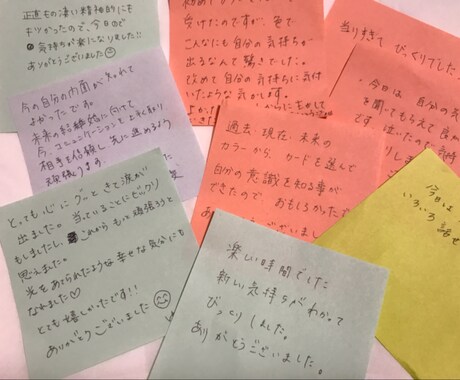 正直もの凄い精神的にも
キツかったので、今日の
気持ちが楽になりました!!
ありがとうございました
受けたのですが、色で
こんなにも自分の気持ちが
出るなんて驚きでした。
改めて自分の気持ちに気付
いたような気がします。
当りすぎて びっくりでした
今日は 自分の気
を聞いてもらえて良か
です 泣いたので気持
今の自分の内面が知れて
よかったです。
未来の結婚他に向けて
今、コミュニケーションをとり
相手を信頼し 先に進めるよう
頑張ります。
過去・現在・未来の
カラーから、カードを選んで
自分の意識を知る事が
できたので、おもしろかったで
とっても心に グーッときて涙が
出ました。当っていることにビックリ
もしましたし、これから もっと頑張ろうと
思えました。
光をあてられたような 幸せな気分にも
なれました♡
とても嬉しかったです!!
ありがとうございました
楽しい時間でした
新しい気持ちがわかって
びっくりしました。
ありがとうございました。
今日は
いろいろ 話せ